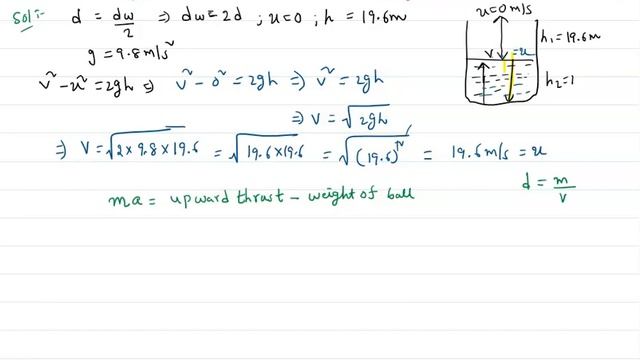 Sol:- d = dw/2 ⇒ dw = 2d ; u=0 ; h = 19.6m
g = 9.8m/s²
v²-u² = 2gh ⇒ v²-0² = 2gh ⇒ v² = 2gh
⇒ v = √2gh
⇒ V = √2×9.8×19.6 = √19.6×19.6 = √(19.6)² = 19.6m/s = u
ma = upward thrust - weight of ball
d = m/v
u=0m/s
h₁=19.6m
v =u
h₂=?